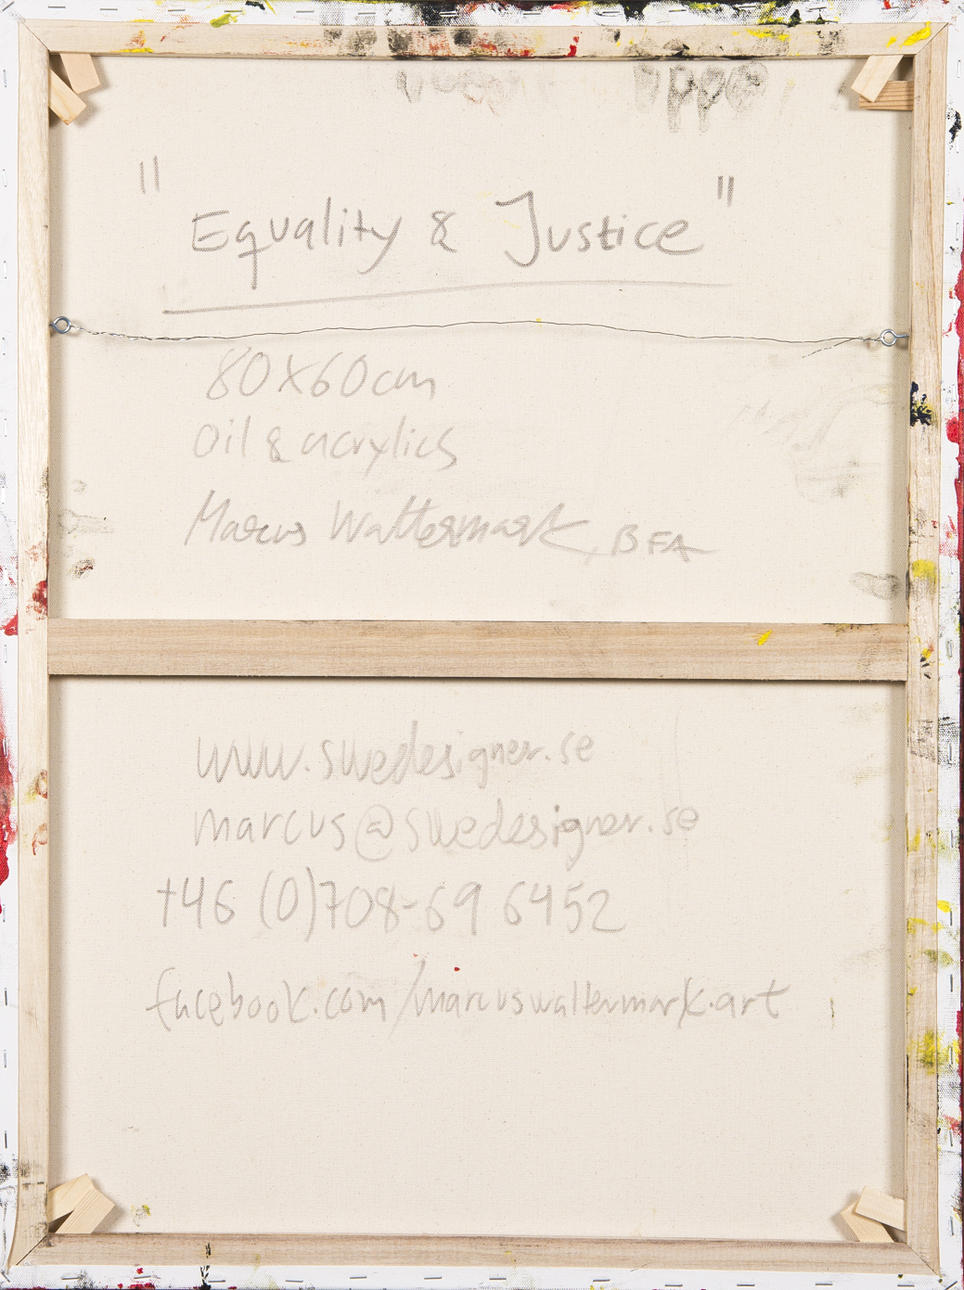 "Equality & Justice"
80x60cm
Oil & acrylics
Marcus Waltermark, BFA
www.swedesigner.se
marcus@swedesigner.se
+46 (0)708-69 6452
facebook.com/marcuswaltermark.art